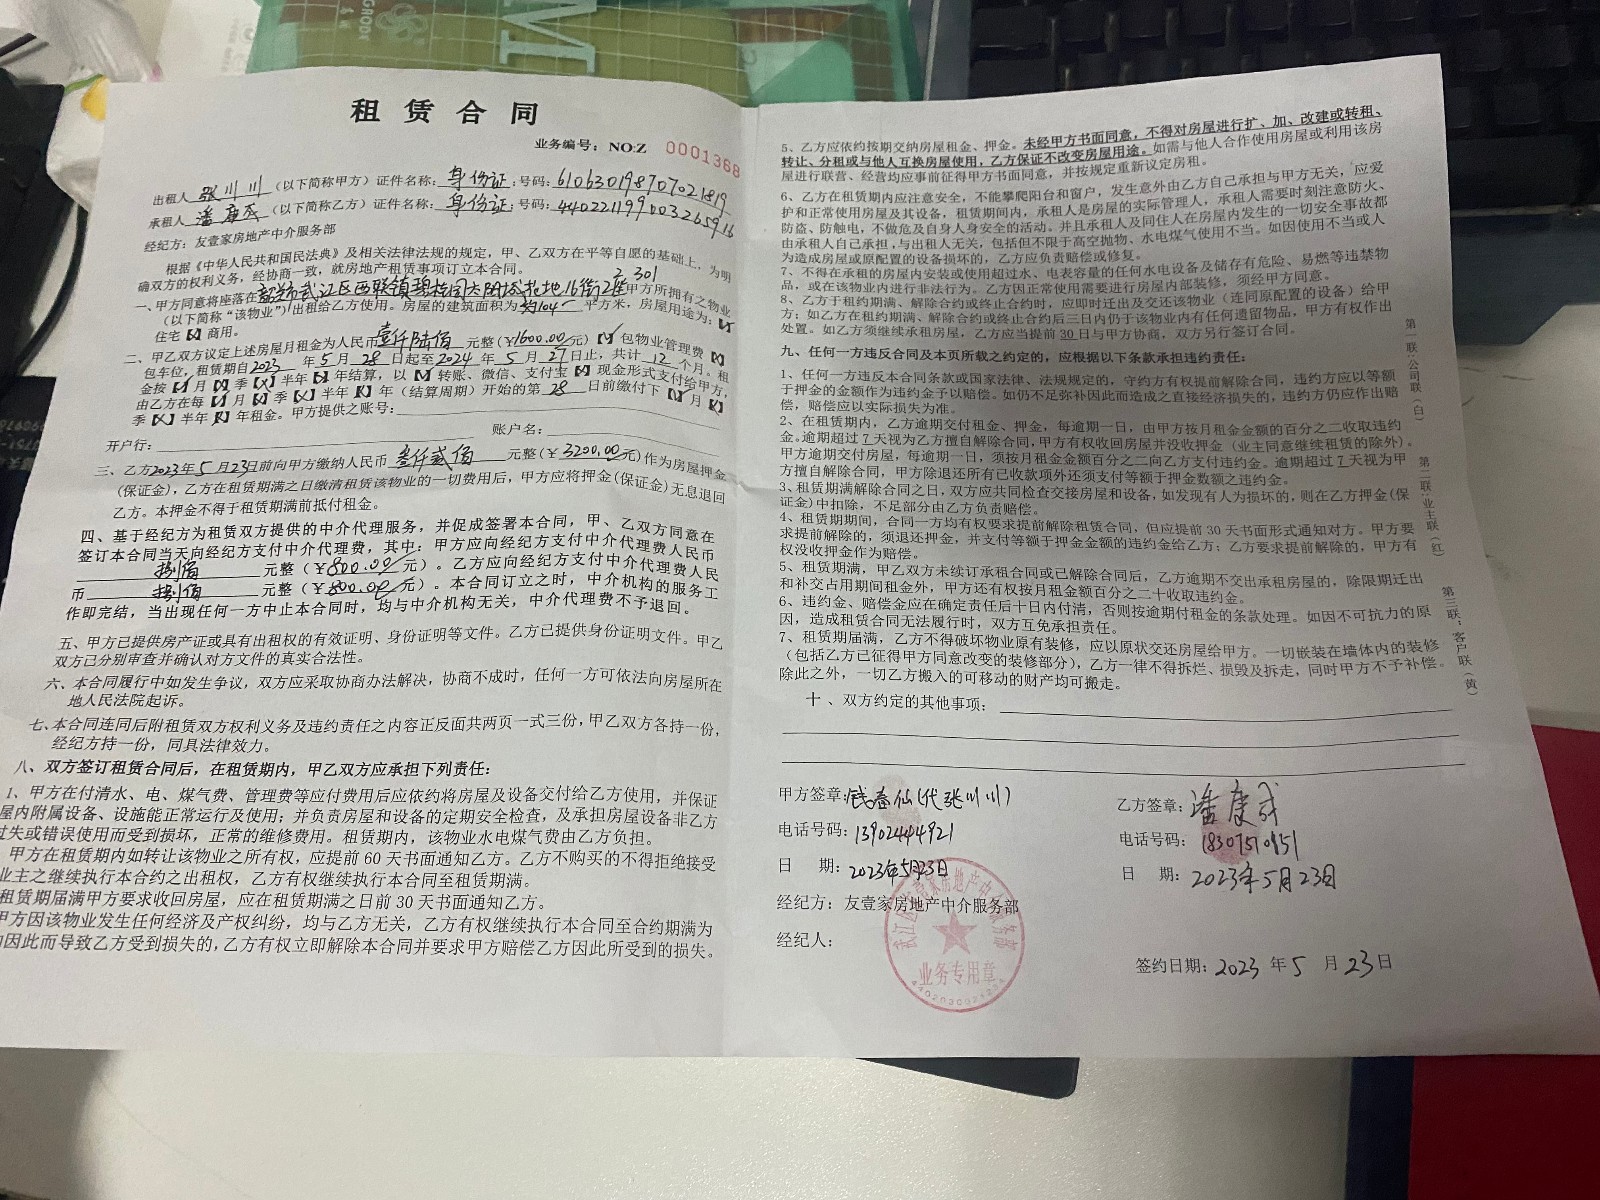 租 赁 合 同
业务编号：NO:Z 0001368
出租人 张川川 （以下简称甲方）证件名称：身份证；号码：610630198707021819
承租人 潘康 （以下简称乙方）证件名称：身份证；号码：
经纪方：友壹家房地产中介服务部
根据《中华人民共和国民法典》及相关法律法规的规定，甲、乙双方在平等自愿的基础上，为明
确双方的权利义务，经协商一致，就房地产租赁事项订立本合同。
一、甲方同意将座落在 韶关市武江区西联镇碧桂园太阳城 地16街2座 2 301 甲方所拥有之物业
（以下简称“该物业”）出租给乙方使用。房屋的建筑面积为 约104 平方米，房屋用途为：【√】
住宅【×】商用。
二、甲乙双方议定上述房屋月租金为人民币 壹仟陆佰 元整（￥1600.00元）【√】包物业管理费【×】
包车位，租赁期自2023 年 5 月 28 日起至 2024 年 5 月 27 日止，共计 12 个月。租
金按【√】月【×】季【×】半年【×】年结算，以【√】转账、微信、支付宝【×】现金形式支付给甲方，
由乙方在每【√】月【×】季【×】半年【×】年（结算周期）开始的第 28 日前缴付下【√】月【×】
季【×】半年【×】年租金。甲方提供之账号：
开户行： 账户名：
三、乙方2023年 5 月 23日前向甲方缴纳人民币 叁仟贰佰 元整（￥3200.00元）作为房屋押金
(保证金)，乙方在租赁期满之日缴清租赁该物业的一切费用后，甲方应将押金(保证金)无息退回
乙方。本押金不得于租赁期满前抵付租金。
四、基于经纪方为租赁双方提供的中介代理服务，并促成签署本合同，甲、乙双方同意在
签订本合同当天向经纪方支付中介代理费，其中：甲方应向经纪方支付中介代理费人民币
捌佰 元整（￥800.00元）。乙方应向经纪方支付中介代理费人民
币 捌佰 元整（￥800.00元）。本合同订立之时，中介机构的服务工
作即完结，当出现任何一方中止本合同时，均与中介机构无关，中介代理费不予退回。
五、甲方已提供房产证或具有出租权的有效证明、身份证明等文件。乙方已提供身份证明文件。甲乙
双方已分别审查并确认对方文件的真实合法性。
六、本合同履行中如发生争议，双方应采取协商办法解决，协商不成时，任何一方可依法向房屋所在
地人民法院起诉。
七、本合同连同后附租赁双方权利义务及违约责任之内容正反面共两页一式三份，甲乙双方各持一份，
经纪方持一份，同具法律效力。
八、双方签订租赁合同后，在租赁期内，甲乙双方应承担下列责任：
1、甲方在付清水、电、煤气费、管理费等应付费用后应依约将房屋及设备交付给乙方使用，并保证
屋内附属设备、设施能正常运行及使用；并负责房屋和设备的定期安全检查，及承担房屋设备非乙方
过失或错误使用而受到损坏，正常的维修费用。租赁期内，该物业水电煤气费由乙方负担。
甲方在租赁期内如转让该物业之所有权，应提前 60 天书面通知乙方。乙方不购买的不得拒绝接受
业主之继续执行本合约之出租权，乙方有权继续执行本合同至租赁期满。
租赁期届满甲方要求收回房屋，应在租赁期满之日前 30 天书面通知乙方。
甲方因该物业发生任何经济及产权纠纷，均与乙方无关，乙方有权继续执行本合同至合约期满为
因此而导致乙方受到损失的，乙方有权立即解除本合同并要求甲方赔偿乙方因此所受到的损失。
5、乙方应依约按期交纳房屋租金、押金。未经甲方书面同意，不得对房屋进行扩、加、改建或转租、
转让、分租或与他人互换房屋使用，乙方保证不改变房屋用途。如需与他人合作使用房屋或利用该房
屋进行联营、经营均应事前征得甲方书面同意，并按规定重新议定房租。
6、乙方在租赁期内应注意安全，不能攀爬阳台和窗户，发生意外由乙方自己承担与甲方无关，应爱
护和正常使用房屋及其设备，租赁期间内，承租人是房屋的实际管理人，承租人需要时刻注意防火、
防盗、防触电，不做危及自身人身安全的活动。并且承租人及同住人在房屋内发生的一切安全事故都
由承租人自己承担，与出租人无关，包括但不限于高空抛物、水电煤气使用不当。如因使用不当或人
为造成房屋或原配置的设备损坏的，乙方应负责赔偿或修复。
7、不得在承租的房屋内安装或使用超过水、电表容量的任何水电设备及储存有危险、易燃等违禁物
品，或在该物业内进行非法行为。乙方因正常使用需要进行房屋内部装修，须经甲方同意。
8、乙方于租约期满、解除合约或终止合约时，应即时迁出及交还该物业（连同原配置的设备）给甲
方；如乙方在租约期满、解除合约或终止合约后三日内仍于该物业内有任何遗留物品，甲方有权作出
处置。如乙方须继续承租房屋，乙方应当提前 30 日与甲方协商，双方另行签订合同。
九、任何一方违反合同及本页所载之约定的，应根据以下条款承担违约责任：
1、任何一方违反本合同条款或国家法律、法规规定的，守约方有权提前解除合同，违约方应以等额
于押金的金额作为违约金予以赔偿。如仍不足弥补因此而造成之直接经济损失的，违约方仍应作出赔
偿，赔偿应以实际损失为准。
2、在租赁期内，乙方逾期交付租金、押金，每逾期一日，由甲方按月租金金额的百分之二收取违约
金。逾期超过 7 天视为乙方擅自解除合同，甲方有权收回房屋并没收押金（业主同意继续租赁的除外）。
甲方逾期交付房屋，每逾期一日，须按月租金金额百分之二向乙方支付违约金。逾期超过 7 天视为甲
方擅自解除合同，甲方除退还所有已收款项外还须支付等额于押金数额之违约金。
3、租赁期满解除合同之日，双方应共同检查交接房屋和设备，如发现有人为损坏的，则在乙方押金(保
证金)中扣除，不足部分由乙方负责赔偿。
4、租赁期期间，合同一方均有权要求提前解除租赁合同，但应提前 30 天书面形式通知对方。甲方要
求提前解除的，须退还押金，并支付等额于押金金额的违约金给乙方；乙方要求提前解除的，甲方有
权没收押金作为赔偿。
5、租赁期满，甲乙双方未续订承租合同或已解除合同后，乙方逾期不交出承租房屋的，除限期迁出
和补交占用期间租金外，甲方还有权按月租金额百分之二十收取违约金。
6、违约金、赔偿金应在确定责任后十日内付清，否则按逾期付租金的条款处理。如因不可抗力的原
因，造成租赁合同无法履行时，双方互免承担责任。
7、租赁期届满，乙方不得破坏物业原有装修，应以原状交还房屋给甲方。一切嵌装在墙体内的装修
（包括乙方已征得甲方同意改变的装修部分），乙方一律不得拆烂、损毁及拆走，同时甲方不予补偿。
除此之外，一切乙方搬入的可移动的财产均可搬走。
十、双方约定的其他事项：
甲方签章： (代张川川)
电话号码：13902444921
日 期：2023年5月23日
经纪方：友壹家房地产中介服务部
经纪人：
乙方签章：潘康
电话号码：18307510951
日 期：2023年5月23日
签约日期：2023 年 5 月 23 日
业务专用章
第一联：公司联（白）
第二联：业主联（红）
第三联：客户联（黄）